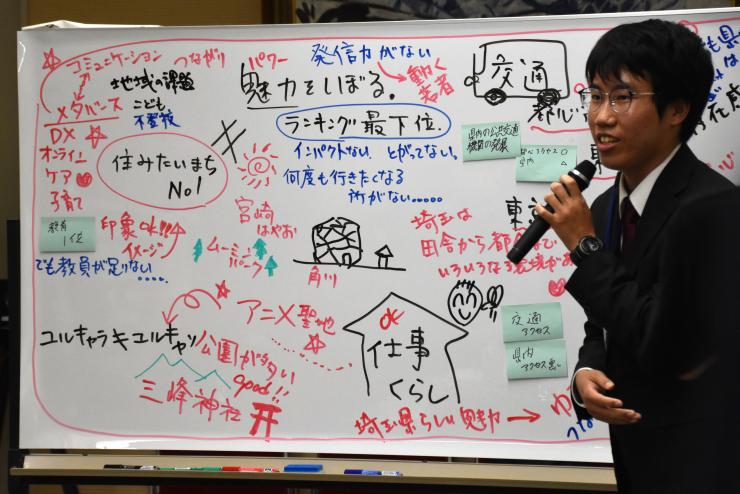 コミュニケーション
つながり
メタバース
地域の課題
こども
不登校
DX
オンライン
ケア
子育て
住みたいまち
No1
教育
1位
印象OK!!
イメージ
でも教員が足りない....
パワー
魅力をしぼる。
発信力がない
動く
若者
ランキング最下位.
インパクトない とがってない。
何度も行きたくなる
所がない......
宮崎
はやお
ムーミン
バレーパーク
角川
交通
県内の公共交通
機関の発展
県内 △
埼玉は
田舎から都会まで
いろいろな環境があ
アニメ聖地
ユルキャラ
公園が多い
good!!
三峰神社
OK
仕事
くらし
交通
アクセス
県内
アクセス悪い
埼玉県らしい魅力 → ゆ